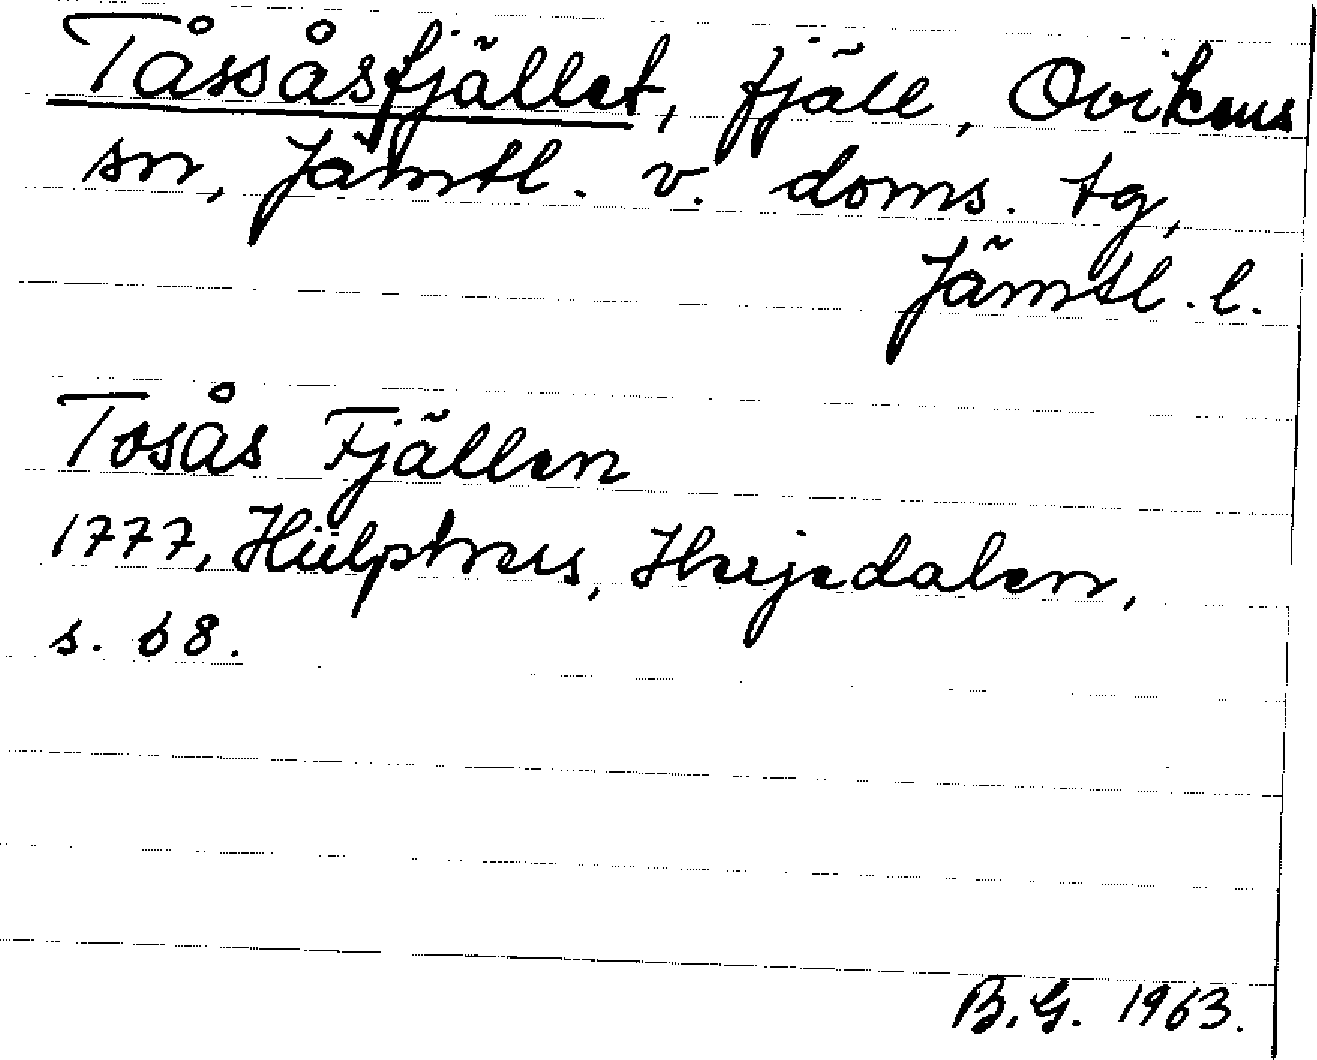 Tåssåsfjället, fjäll, Ovikens
sn, Jämtl. v. doms. tg,
Jämtl. l.
Tosås Fjällen
1777, Hülphers, Herjedalen,
s. 68.
B.G. 1963.